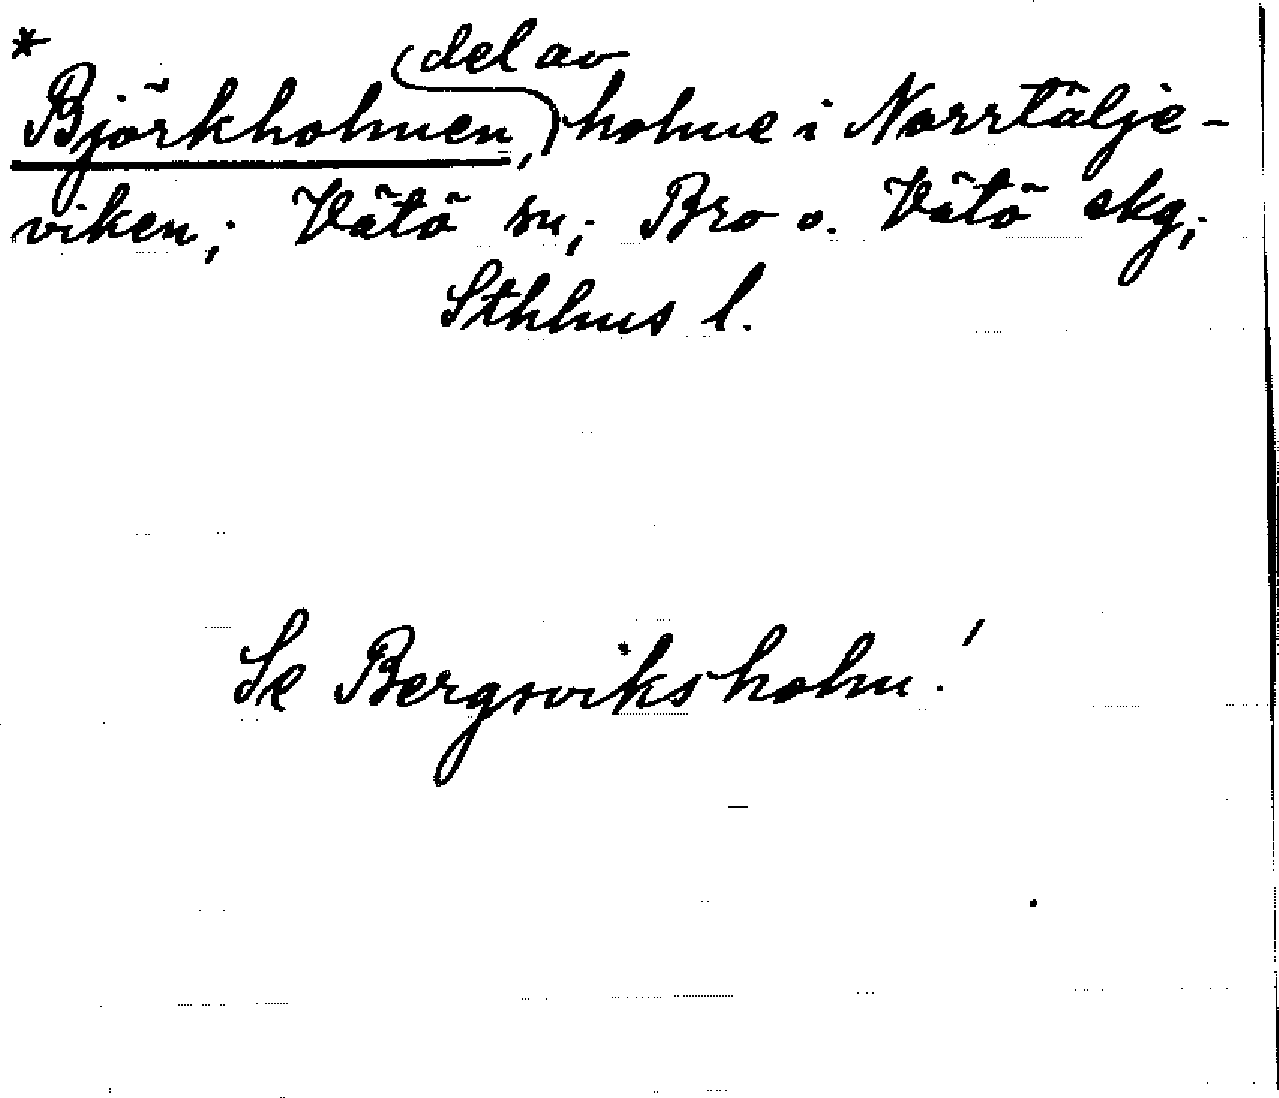 *
del av
Björkholmen, holme i Norrtälje-
viken; Vätö sn; Bro o. Vätö skg;
Sthlms l.
Se Bergsviksholm!